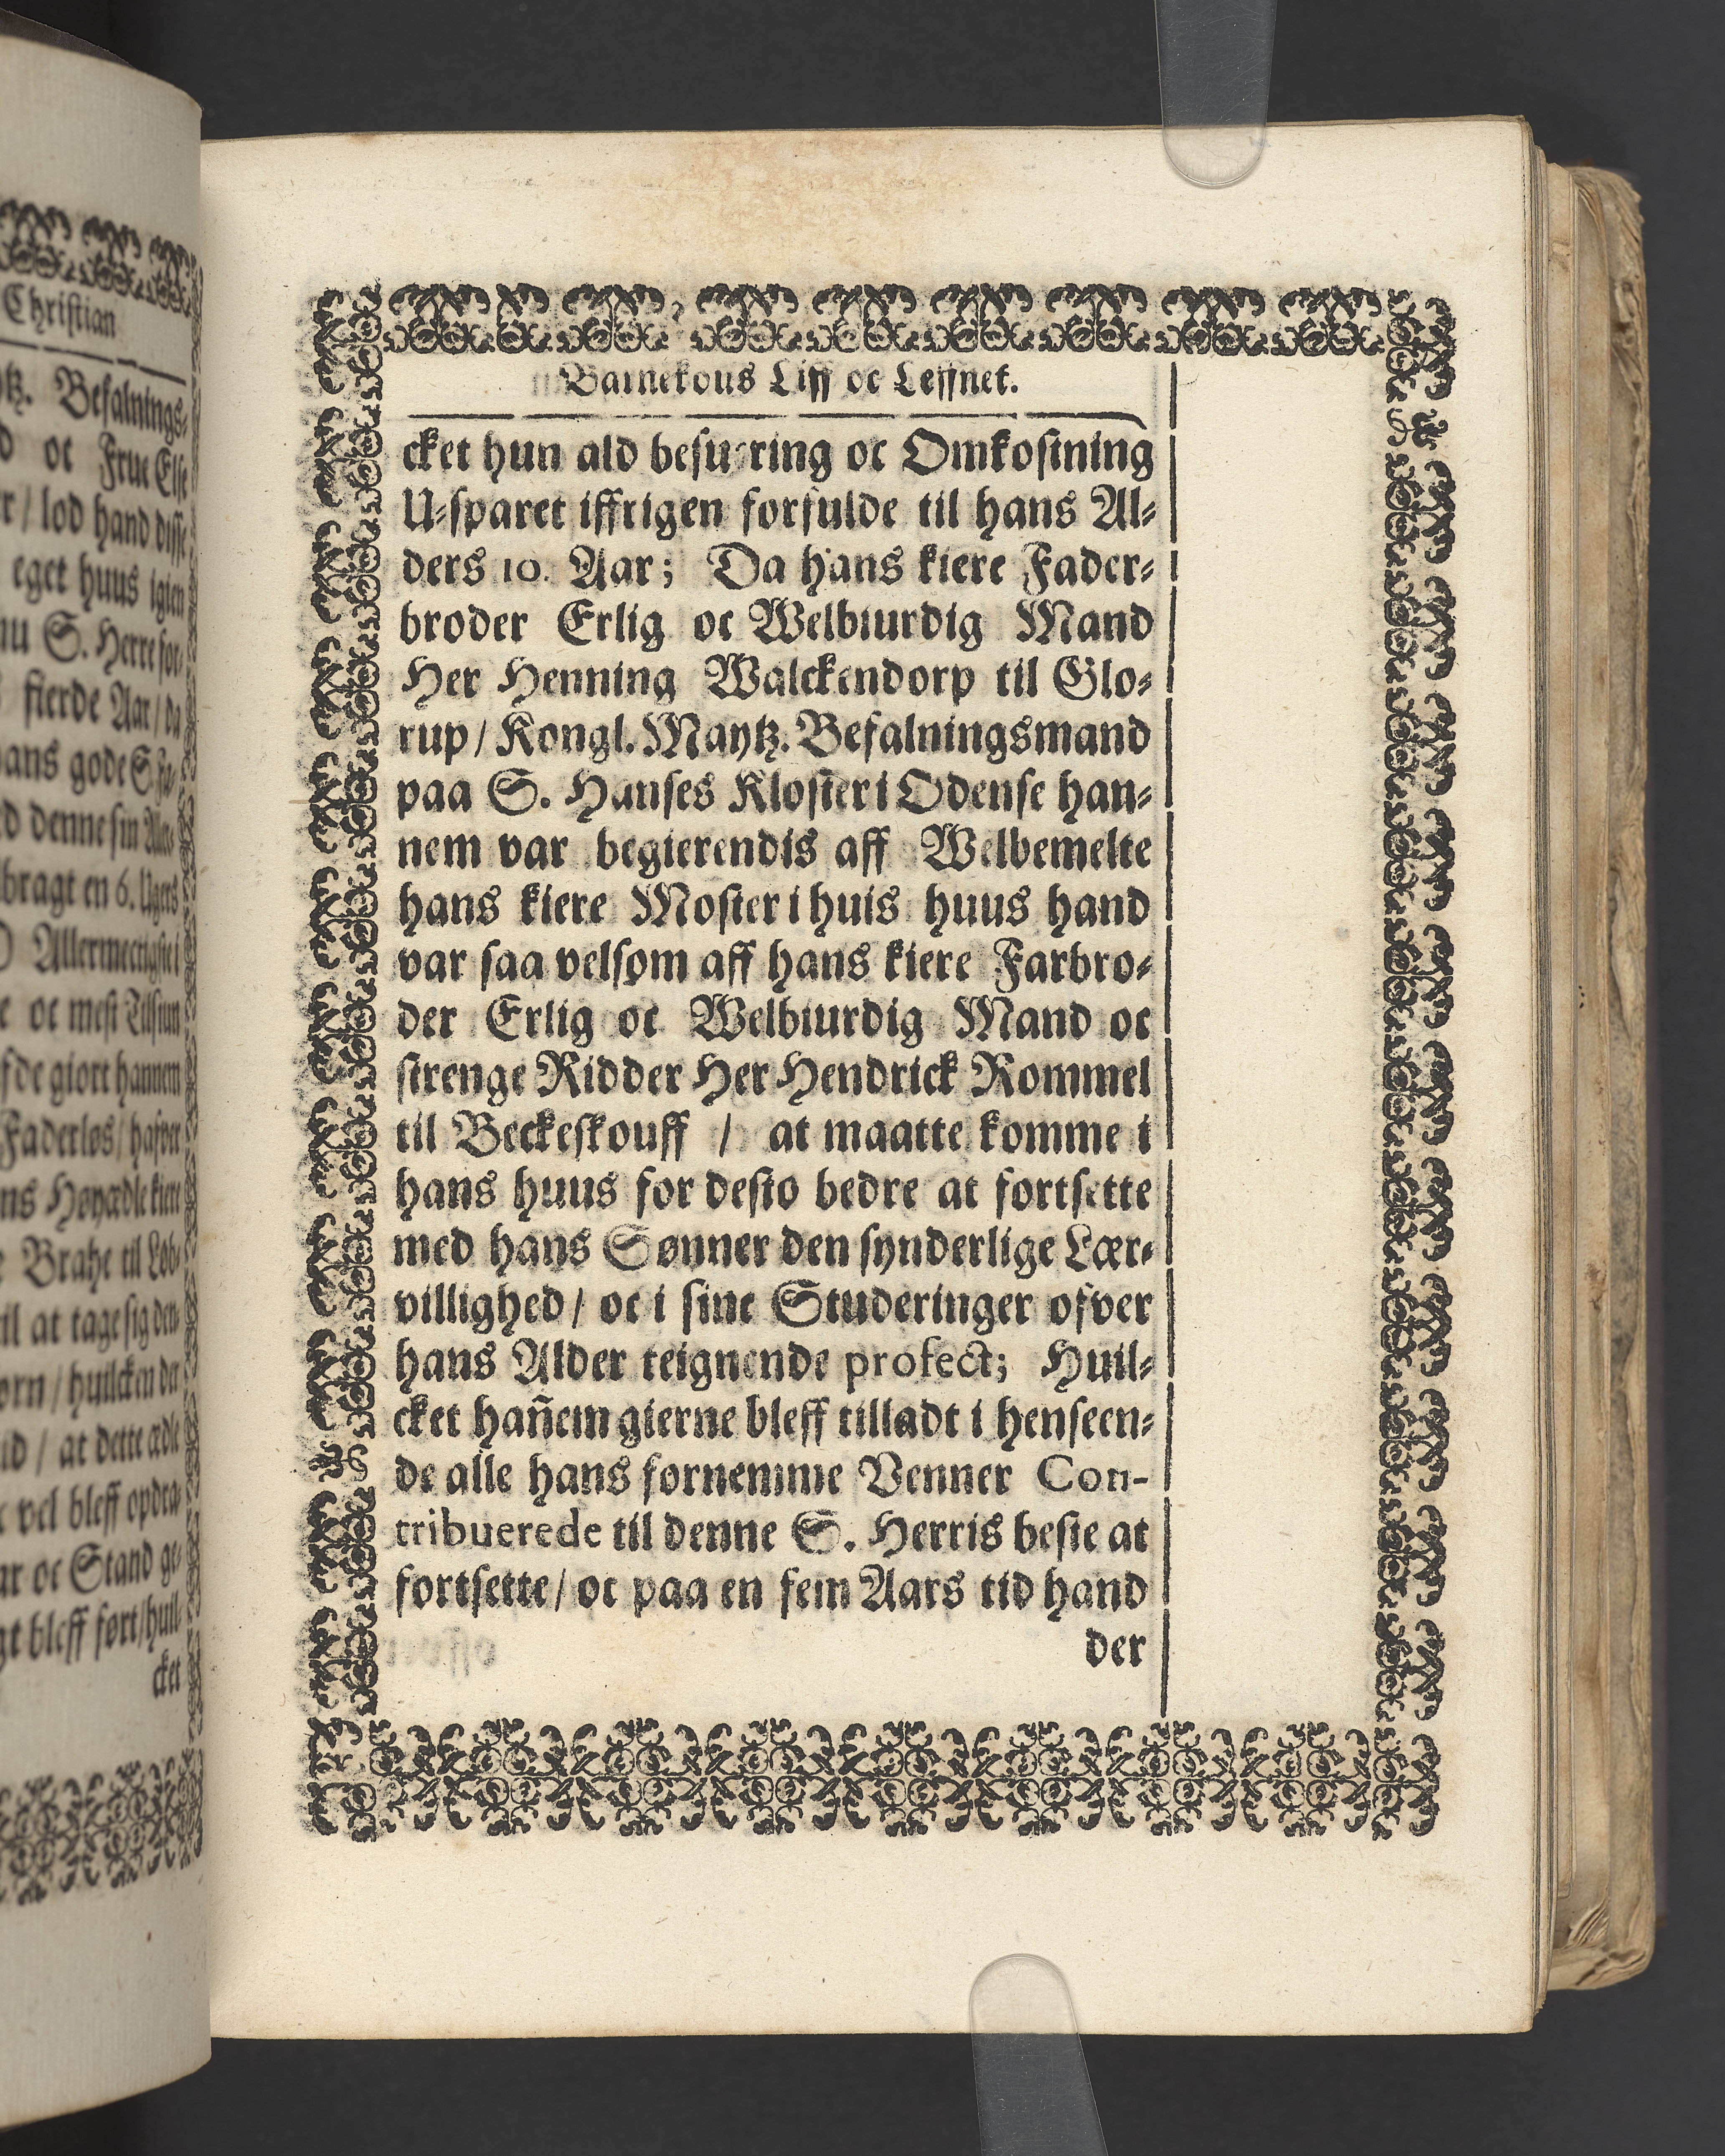 Christian
tz. Befalnings-
d oc Frue Else
r / lod hand disse
eget huus igien
nu S. Herre for-
fierde Aar / da
hans gode S
ed denne sin
bragt en 6. Ugers
D Allermectigste i
e oc mest Tilsiun
fde giort hannem
Faderløs / hafver
ns Høyædle kiere
e Brahe til Løb-
til at tage sig den-
orn / huilcken der
id / at dette ædle
vel bleff opdra-
ar oc Stand ge-
gt bleff ført / huil-
cket
Barnekous Liff oc Leffnet.
cket hun ald besuering oc Omkostning
U-sparet iffrigen forfulde til hans Al-
ders 10. Aar; Da hans kiere Fader-
broder Erlig oc Welbiurdig Mand
Her Henning Walckendorp til Glo-
rup / Kongl. Maytz. Befalningsmand
paa S. Hanses Kloster i Odense han-
nem var begierendis aff Welbemelte
hans kiere Moster i huis huus hand
var saa velsom aff hans kiere Farbro-
der Erlig oc Welbiurdig Mand oc
strenge Ridder Her Hendrick Rommel
til Beckeskouff / at maatte komme i
hans huus for desto bedre at fortsette
med hans Sønner den synderlige Lær-
villighed / oc i sine Studeringer ofver
hans Alder teignende profect; Huil-
cket hañem gierne bleff tilladt i henseen-
de alle hans fornemme Venner Con-
tribuerede til denne S. Herris beste at
fortsette / oc paa en fem Aars tid hand
der